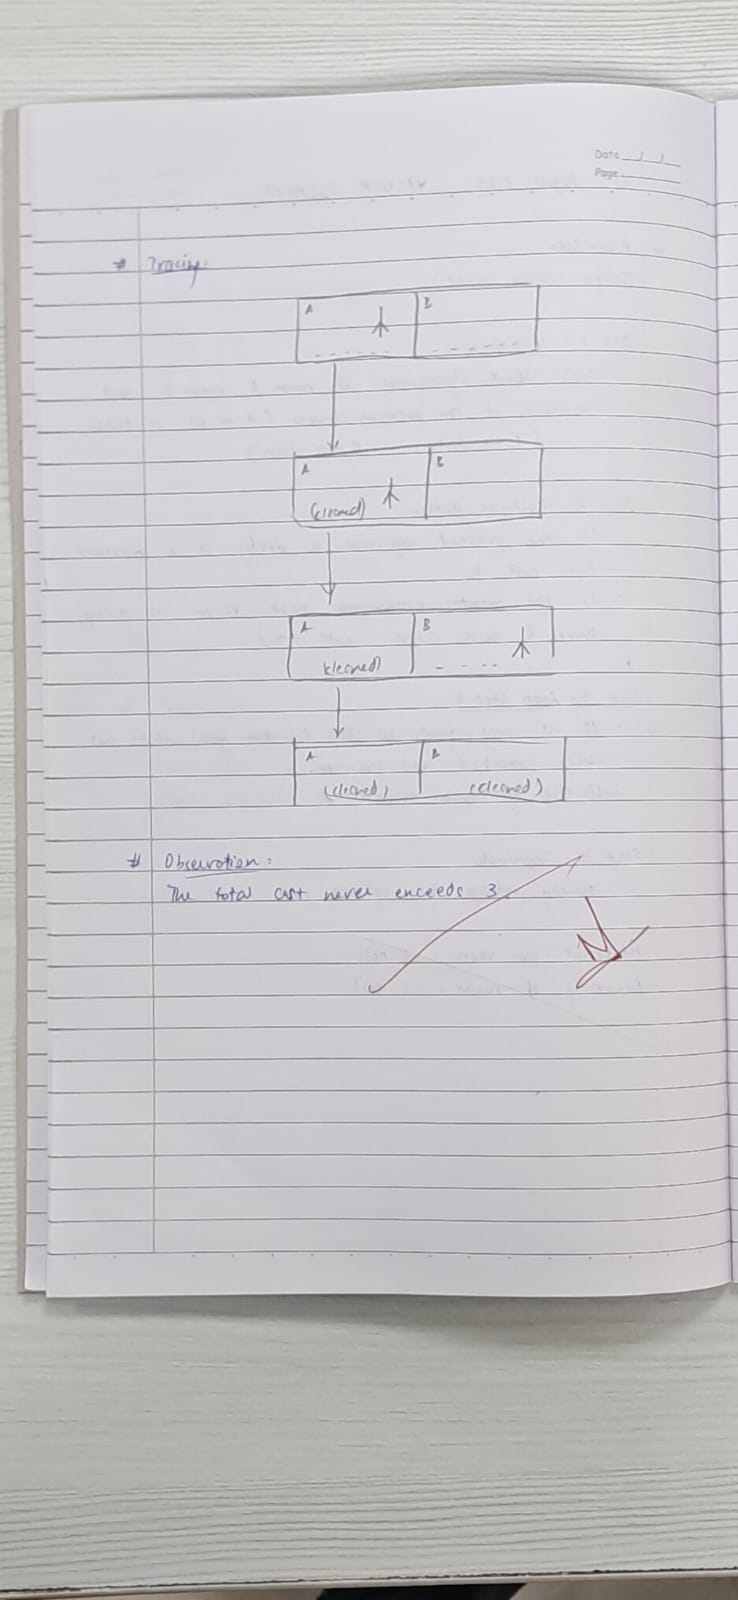 Date __/__/__
Page
# Tracing:
A B
A B
(cleaned)
A B
(cleaned)
A B
(cleaned) (cleaned)
# Observation:
The total cost never exceeds 3